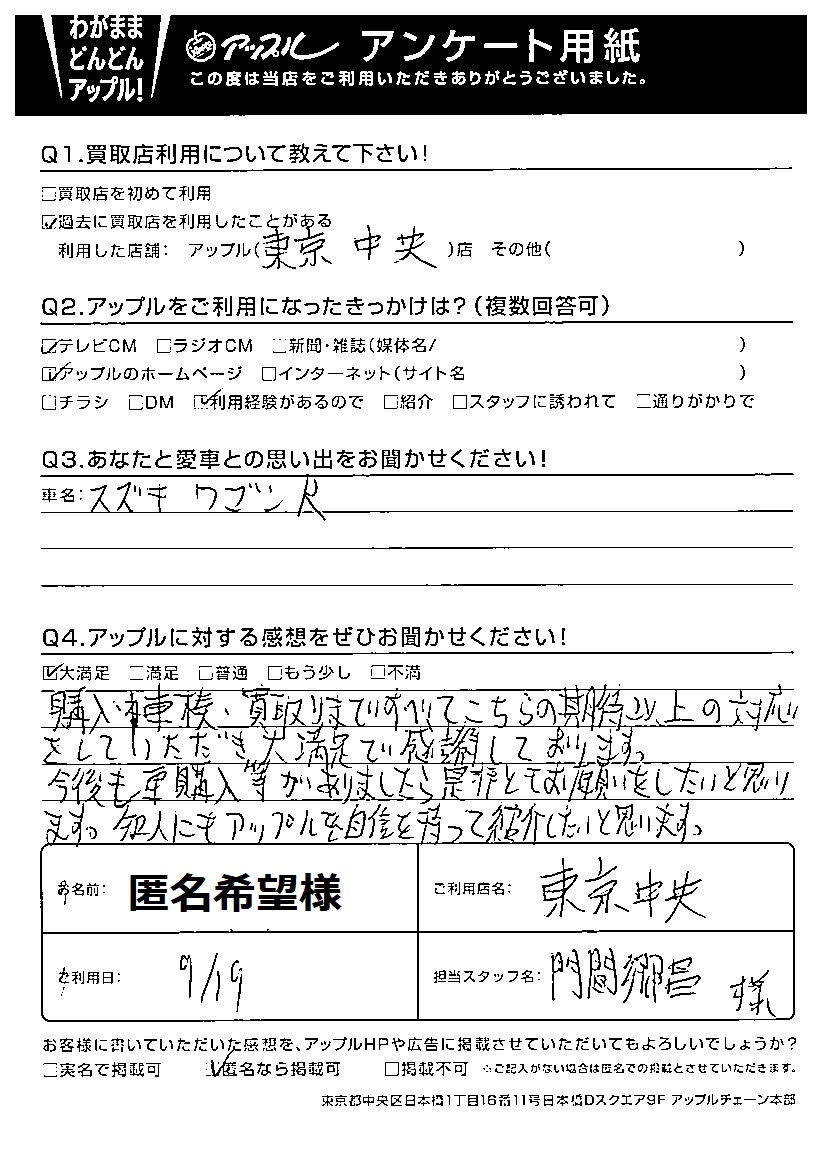 わがまま
どんどん
アップル!
アップル アンケート用紙
この度は当店をご利用いただきありがとうございました。
Q1.買取店利用について教えて下さい!
□買取店を初めて利用
☑過去に買取店を利用したことがある
利用した店舗: アップル(東京 中央)店 その他( )
Q2.アップルをご利用になったきっかけは?(複数回答可)
☑テレビCM □ラジオCM □新聞・雑誌(媒体名/ )
☑アップルのホームページ □インターネット(サイト名 )
□チラシ □DM ☑利用経験があるので □紹介 □スタッフに誘われて □通りがかりで
Q3.あなたと愛車との思い出をお聞かせください!
車名:スズキ ワゴンR
Q4.アップルに対する感想をぜひお聞かせください!
☑大満足 □満足 □普通 □もう少し □不満
購入車検、買取りまですべてこちらの期待以上の対応
をしていただき大満足で感謝しております。
今後も車購入等がありましたら是非とてお願いをしたいと思い
ます。知人にもアップルを自信を持って紹介したいと思います。
お名前: 匿名希望様
ご利用店名: 東京中央
ご利用日: 9/19
担当スタッフ名: 門間郷昌 様
お客様に書いていただいた感想を、アップルHPや広告に掲載させていただいてもよろしいでしょうか?
□実名で掲載可 ☑匿名なら掲載可 □掲載不可 ※ご記入がない場合は匿名での掲載とさせていただきます。
東京都中央区日本橋1丁目16番11号日本橋Dスクエア9F アップルチェーン本部